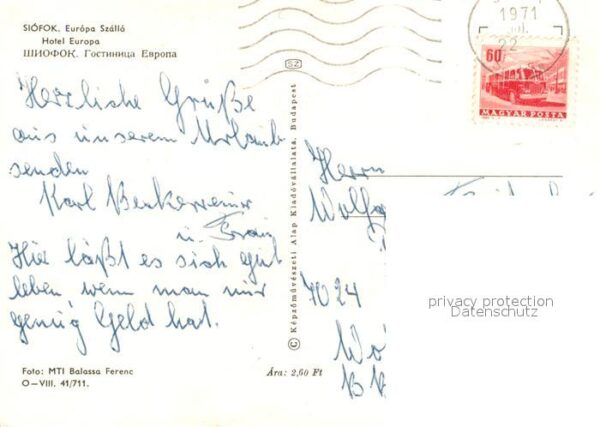 SIÓFOK. Európa Szálló
Hotel Europa
ШИОФОК. Гостиница Европа
1971
22
60f
MAGYAR POSTA
SZ
Herzliche Grüße
aus unserem Urlaub
senden
Karl
u. Frau
Hier läßt es sich gut
leben wenn man nur
genug Geld hat.
Herrn
7024
privacy protection
Datenschutz
© Képzőművészeti Alap Kiadóvállalata, Budapest
Foto: MTI Balassa Ferenc
Ára: 2,60 Ft
O—VIII. 41/711.